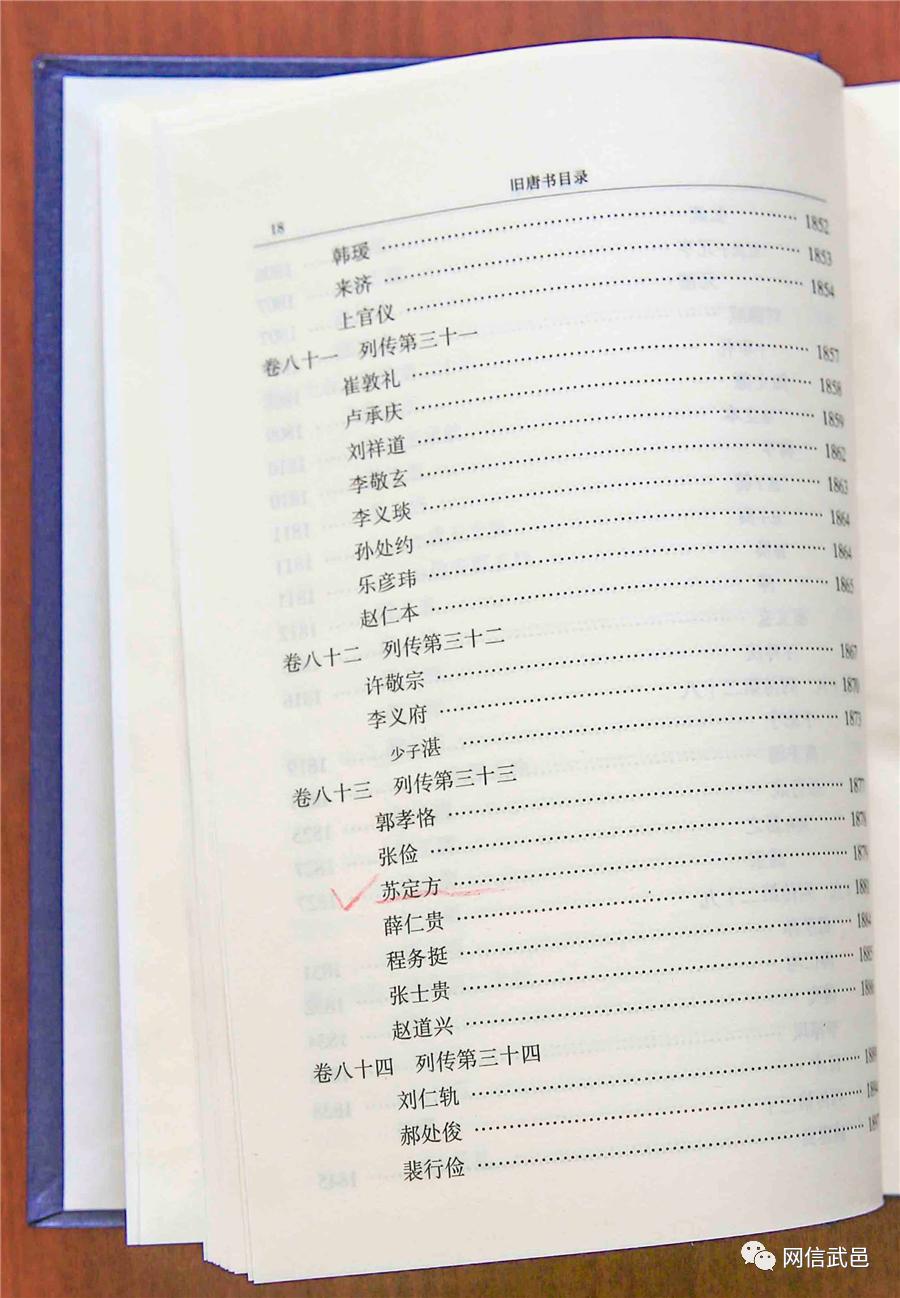 旧唐书目录
18
韩瑗 1852
来济 1853
上官仪 1854
卷八十一 列传第三十一
崔敦礼 1857
卢承庆 1858
刘祥道 1859
李敬玄 1862
李义琰 1863
孙处约 1864
乐彦玮 1864
赵仁本 1865
卷八十二 列传第三十二
许敬宗 1867
李义府 1870
少子湛 1873
卷八十三 列传第三十三
郭孝恪 1877
张俭 1878
苏定方 1879
薛仁贵 1881
程务挺 1884
张士贵 1885
赵道兴 1886
卷八十四 列传第三十四
刘仁轨 1889
郝处俊 1894
裴行俭 1897
网信武邑